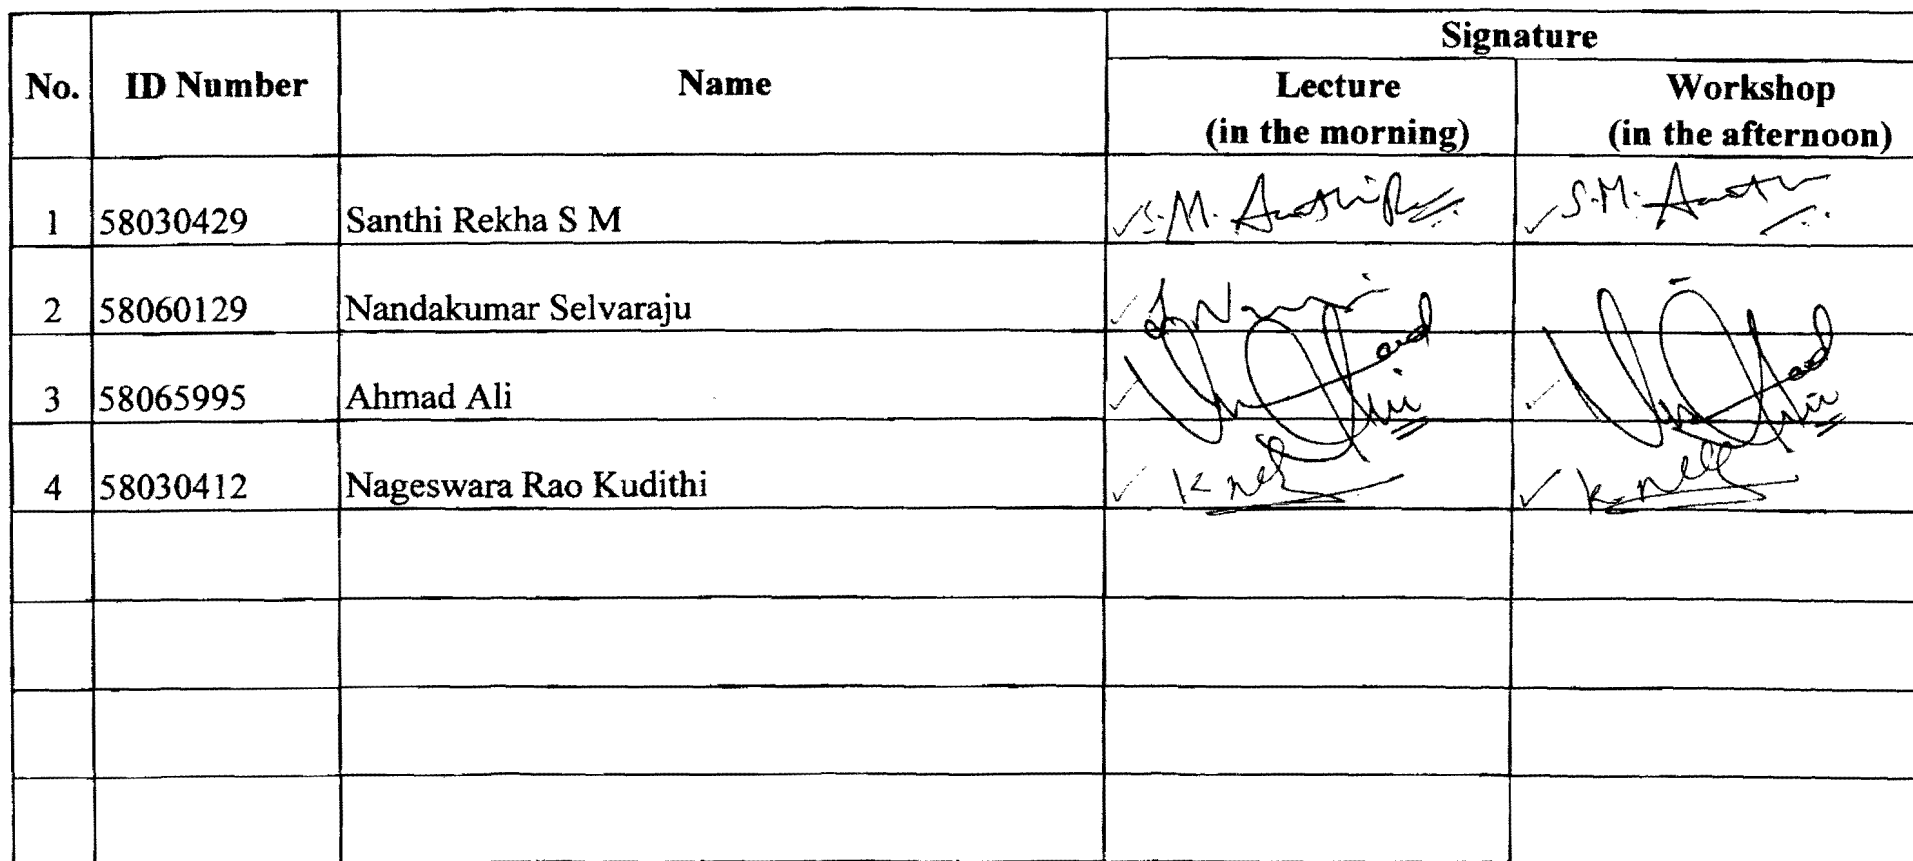 No. ID Number Name Signature
Lecture Workshop
(in the morning) (in the afternoon)
1 58030429 Santhi Rekha S M S.M. S.M.
2 58060129 Nandakumar Selvaraju
3 58065995 Ahmad Ali
4 58030412 Nageswara Rao Kudithi